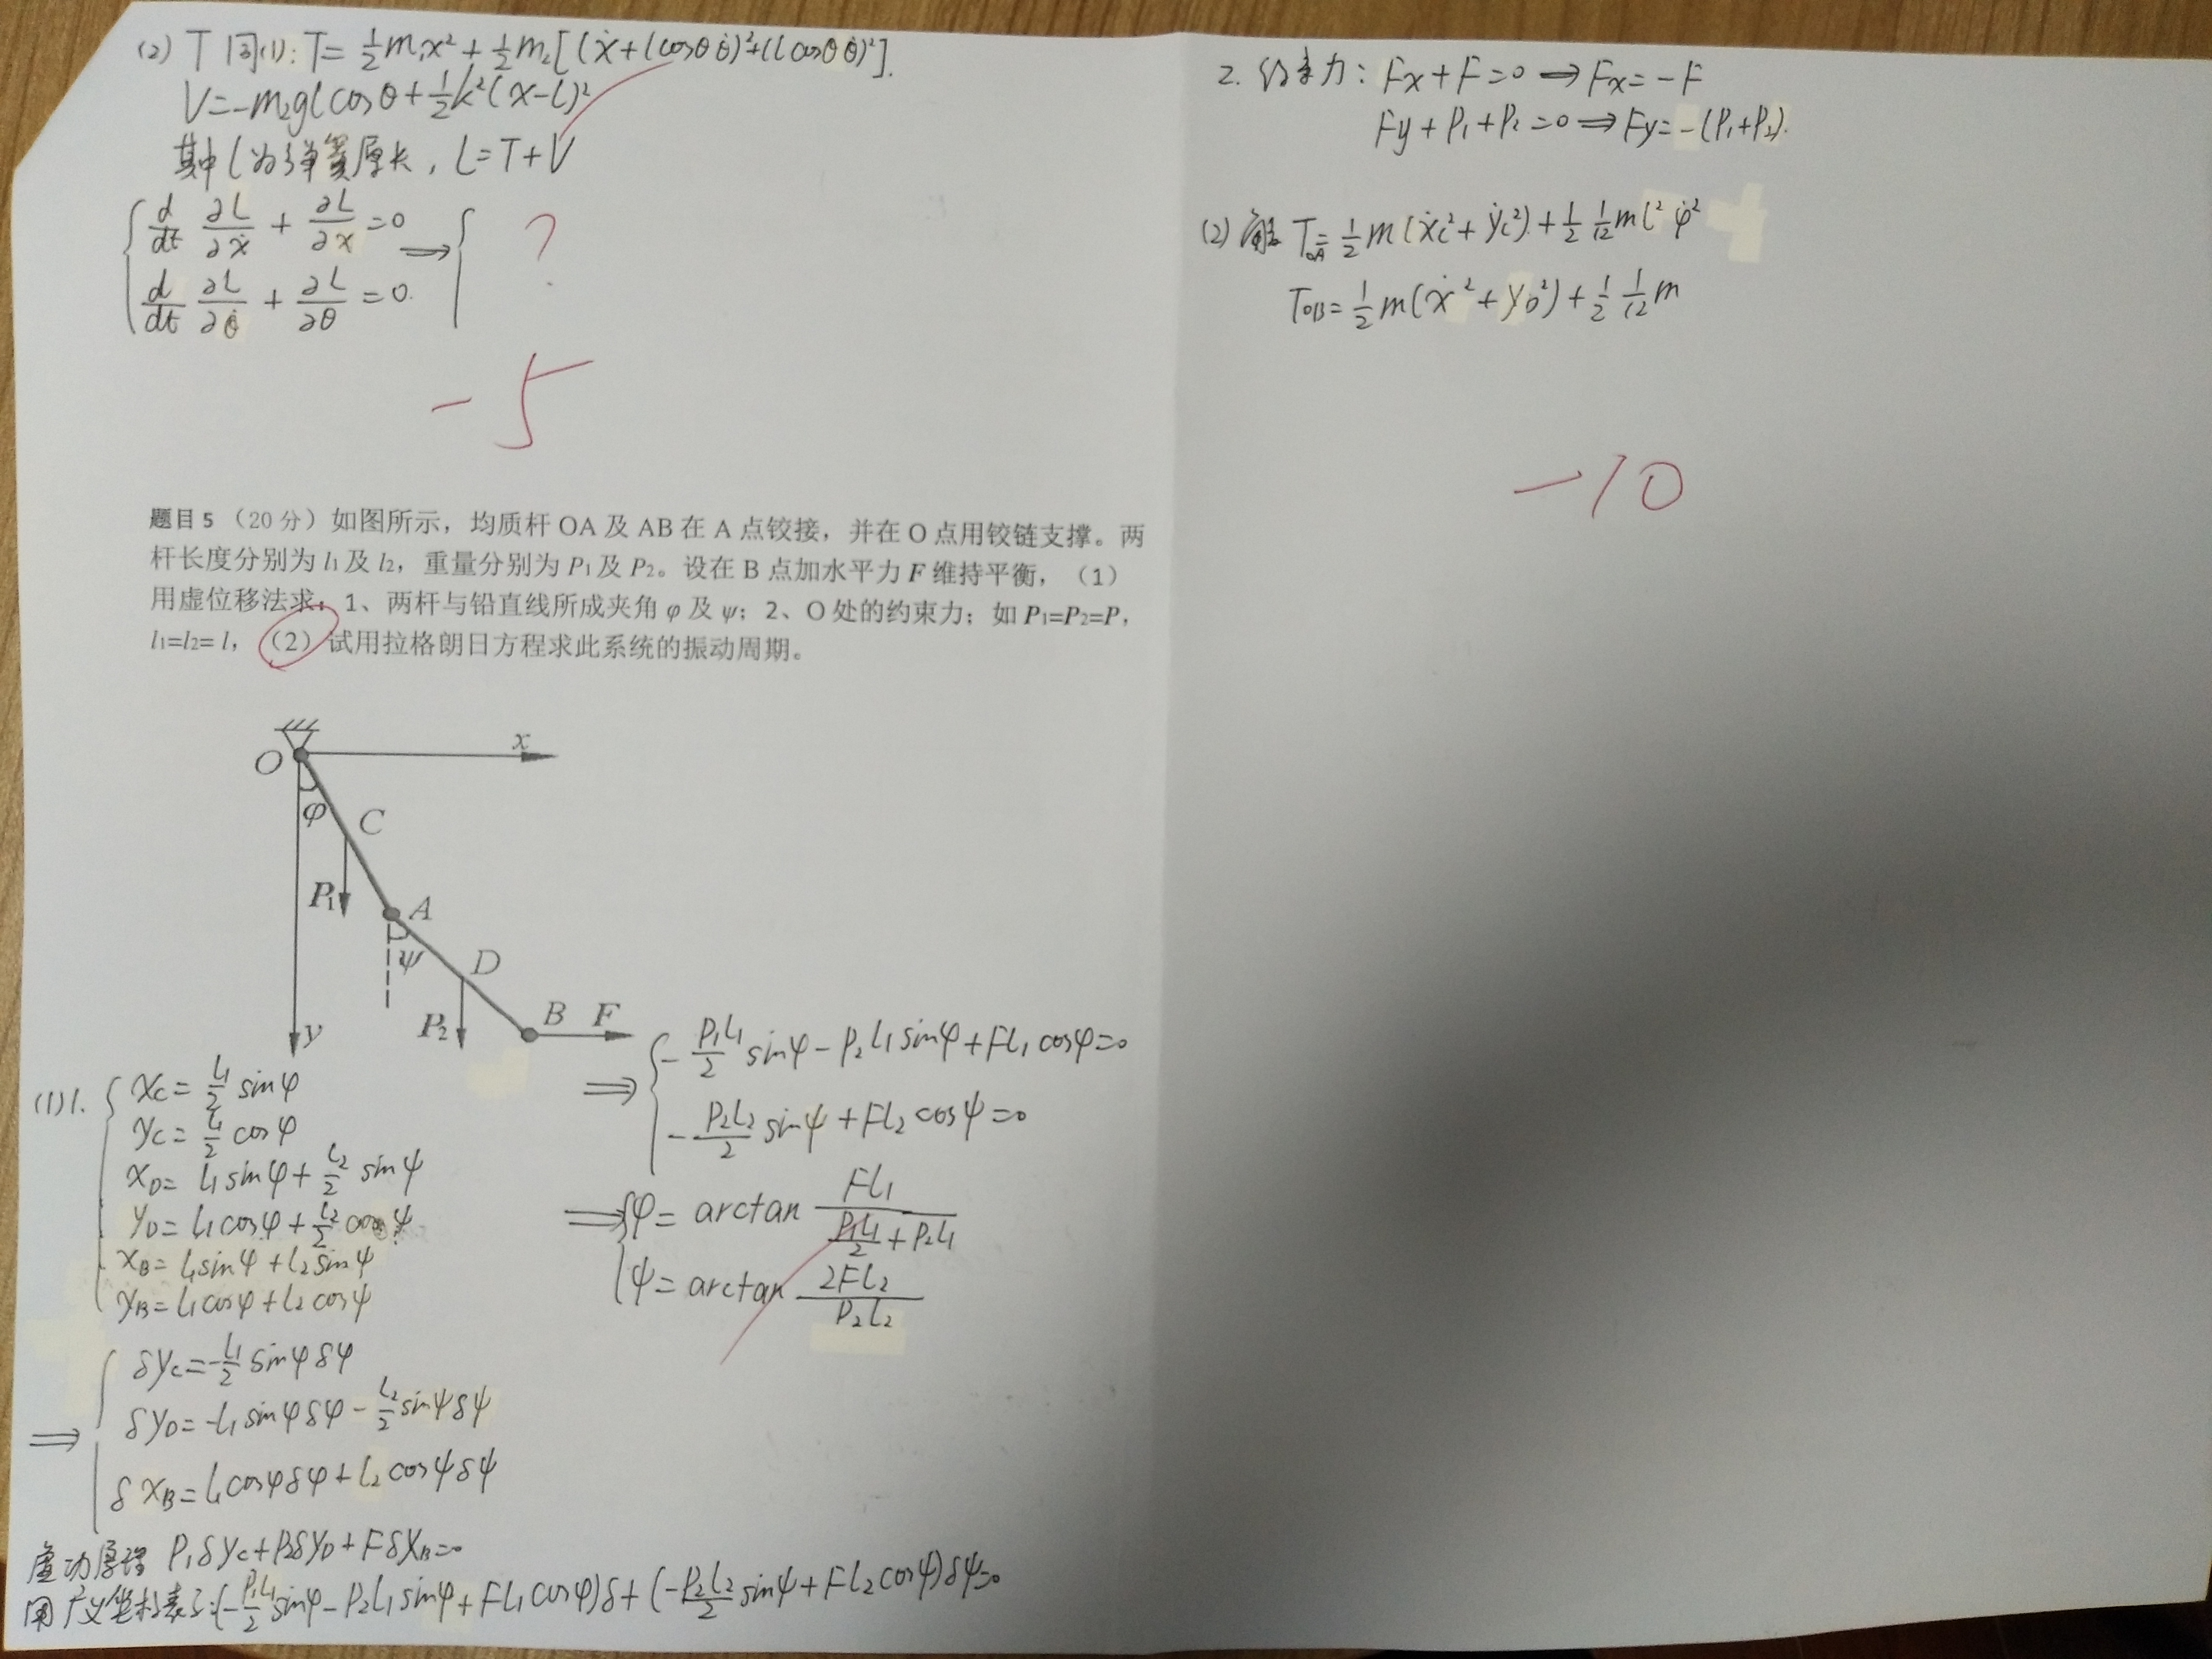 (2) T 同(1): T= 1/2 m₁x² + 1/2 m₂[(ẋ+lcosθ θ̇)²+(lcosθ θ̇)²].
V=-m₂glcosθ+1/2 k²(x-l)²
其中 l 为弹簧原长, L=T+V
d/dt ∂L/∂ẋ + ∂L/∂x =0
⟹ { ?
d/dt ∂L/∂θ̇ + ∂L/∂θ =0.
-5
题目5（20分）如图所示，均质杆 OA 及 AB 在 A 点铰接，并在 O 点用铰链支撑。两
杆长度分别为 l₁及 l₂，重量分别为 P₁及 P₂。设在 B 点加水平力 F 维持平衡，（1）
用虚位移法求：1、两杆与铅直线所成夹角 φ 及 ψ；2、O 处的约束力；如 P₁=P₂=P，
l₁=l₂= l，（2）试用拉格朗日方程求此系统的振动周期。
O
x
φ
C
P₁
A
ψ
D
P₂
B
F
y
(1) 1. { xC= l₁/2 sinφ
yC= l₁/2 cosφ
xD= l₁sinφ+ l₂/2 sinψ
yD= l₁cosφ+ l₂/2 cosψ
xB= l₁sinφ+l₂sinψ
yB= l₁cosφ+l₂cosψ
⟹ { δyC=-l₁/2 sinφδφ
δyD=-l₁sinφδφ- l₂/2 sinψδψ
δxB=l₁cosφδφ+l₂cosψδψ
虚功原理 P₁δyC+P₂δyD+FδxB=0
用广义坐标表示:(-P₁l₁/2 sinφ-P₂l₁sinφ+Fl₁cosφ)δ+(-P₂l₂/2 sinψ+Fl₂cosψ)δψ=0
⟹ { -P₁l₁/2 sinφ-P₂l₁sinφ+Fl₁cosφ=0
-P₂l₂/2 sinψ+Fl₂cosψ=0
⟹ { φ= arctan Fl₁/(P₁l₁/2+P₂l₁)
ψ= arctan 2Fl₂/P₂l₂
2. 约束力: Fx+F=0 ⟹ Fx=-F
Fy+P₁+P₂=0 ⟹ Fy=-(P₁+P₂).
(2) 解 TOA= 1/2 m(ẋC²+ẏC²)+1/2 1/12 ml²φ̇²
TOB= 1/2 m(ẋ²+yD²)+1/2 1/12 m
-10